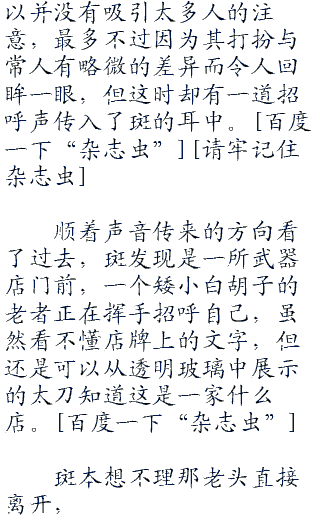 以并没有吸引太多人的注
意，最多不过因为其打扮与
常人有略微的差异而令人回
眸一眼，但这时却有一道招
呼声传入了斑的耳中。[百度
一下“杂志虫”][请牢记住
杂志虫]
顺着声音传来的方向看
了过去，斑发现是一所武器
店门前，一个矮小白胡子的
老者正在挥手招呼自己，虽
然看不懂店牌上的文字，但
还是可以从透明玻璃中展示
的太刀知道这是一家什么
店。[百度一下“杂志虫”]
斑本想不理那老头直接
离开，